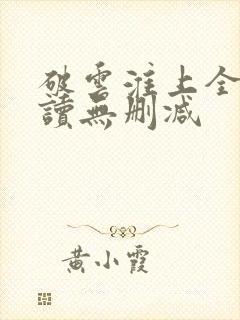 破雲淮上全
讀無刪減
黄小霞